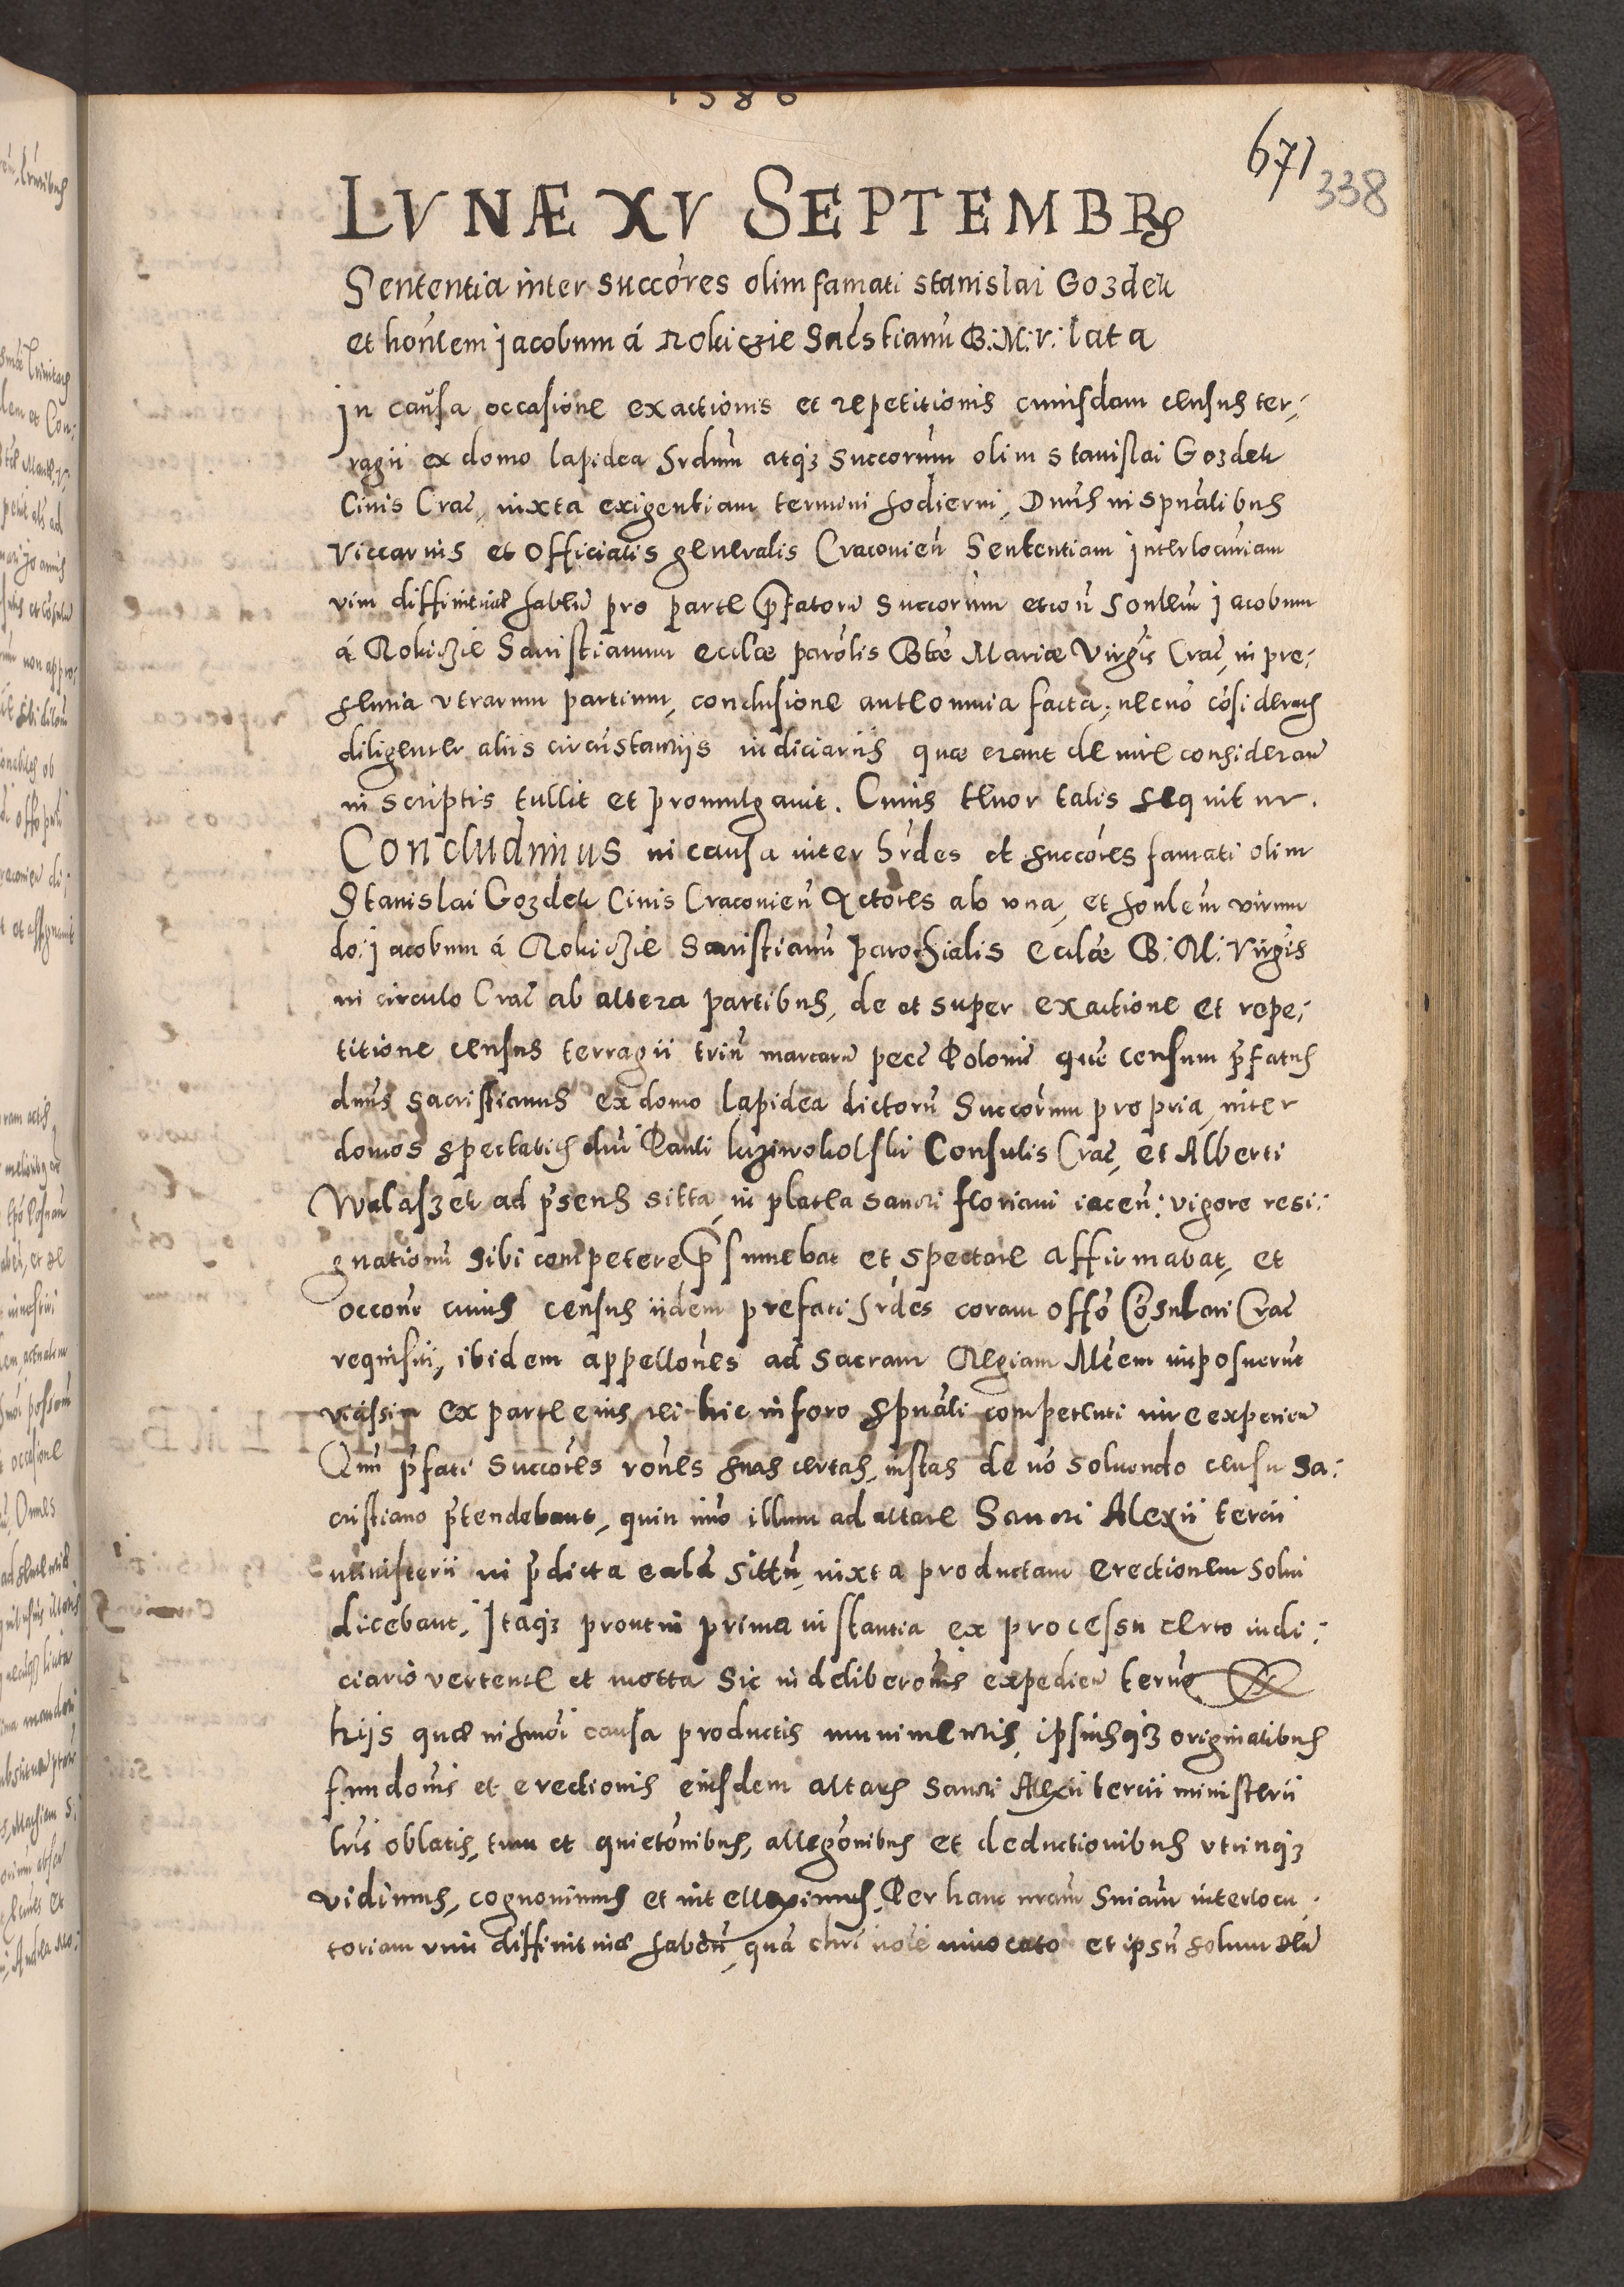 1586
671
338
LVNÆ XV SEPTEMBRIS
Sententia inter succóres olim famati Stanislai Gozdek
et honlem Jacobum á Rokiczie Sacstianũ B: M: V: lata
Jn causa occasione exactionis et repetitionis cuiusdam census ter,
ragii ex domo lapidea hrdum atq3 succorum olim Stanislai Gozdek
Ciuis Crac, iuxta exigentiam termini hodierni, Dnus in spualibus
viccarius et Officialis generalis Cracouieñ Sententiam Jnterlocuriam
vim diffinitiuae habeñ pro parte pfatorũ Succorum et con honlem Jacobum
á Rokiczie Sacristianum ecclae parolis Btae Mariae Virgis Crac, in pre,
sentia vtrarum partium, conclusione ante omnia facta, necnõ cõsideratis
diligenter aliis circũstantijs iudiciariis quae erant de iure considerañ
in scriptis tullit et promulgauit. Cuius tenor talis sequitur.
Concludimus in causa inter hrdes et succóres famati olim
Stanislai Gozdek Ciuis Cracouieñ Actores ab vna, et honlem virum
do: Jacobum á Rokiczie Sacristianũ parochialis ecclae B: M: Virgis
in circulo Crac ab altera partibus, de et super exactione et repe,
titione census terragii triũ marcarũ pecc Polonic quẽ censum pfatus
dnus sacristianus ex domo lapidea dictorũ Succorum propria, inter
domos spectabilis dni Pauli Consulis Crac, et Alberti
Walaszek ad psens sitta, in platea sancti Floriani iaceñ: vigore resi:
gnationũ sibi competere psumebat et spectare affirmabat, et
occone cuius census iidem prefati hrdes coram offo Cõsulari Crac
requisiti, ibidem appellones ad Sacram Regiam Mtem interposuerunt
ex parte eius hic in foro spuali competenti iure experieñ
Qui pfati Succóres rones suas certas, iustas de nõ soluendo censu Sa:
cristiano ptendebant, quin imo illum ad altare Sancti Alexii tercii
ministerii in pdicta ecclã sittũ, iuxta productam erectionem solui
dicebant, Jtaq3 prout in prima instantia ex processu certo iudi:
ciario vertente et motta sic in deliberonis expedieñ termo
hijs quae in hmõi causa productis munimentis, ipsiusq3 originalibus
fundonis et erectionis eiusdem altaris Sancti Alexii tercii ministerii
lris oblatis, tum et quietonibus, allegonibus et deductionibus vtrinq3
vidimus, cognouimus et intelleximus. Per hanc nram Sniam interlocu,
toriam vim diffinitiuae habeñ, quã chri noie inuocato et ipsũ solum Deũ